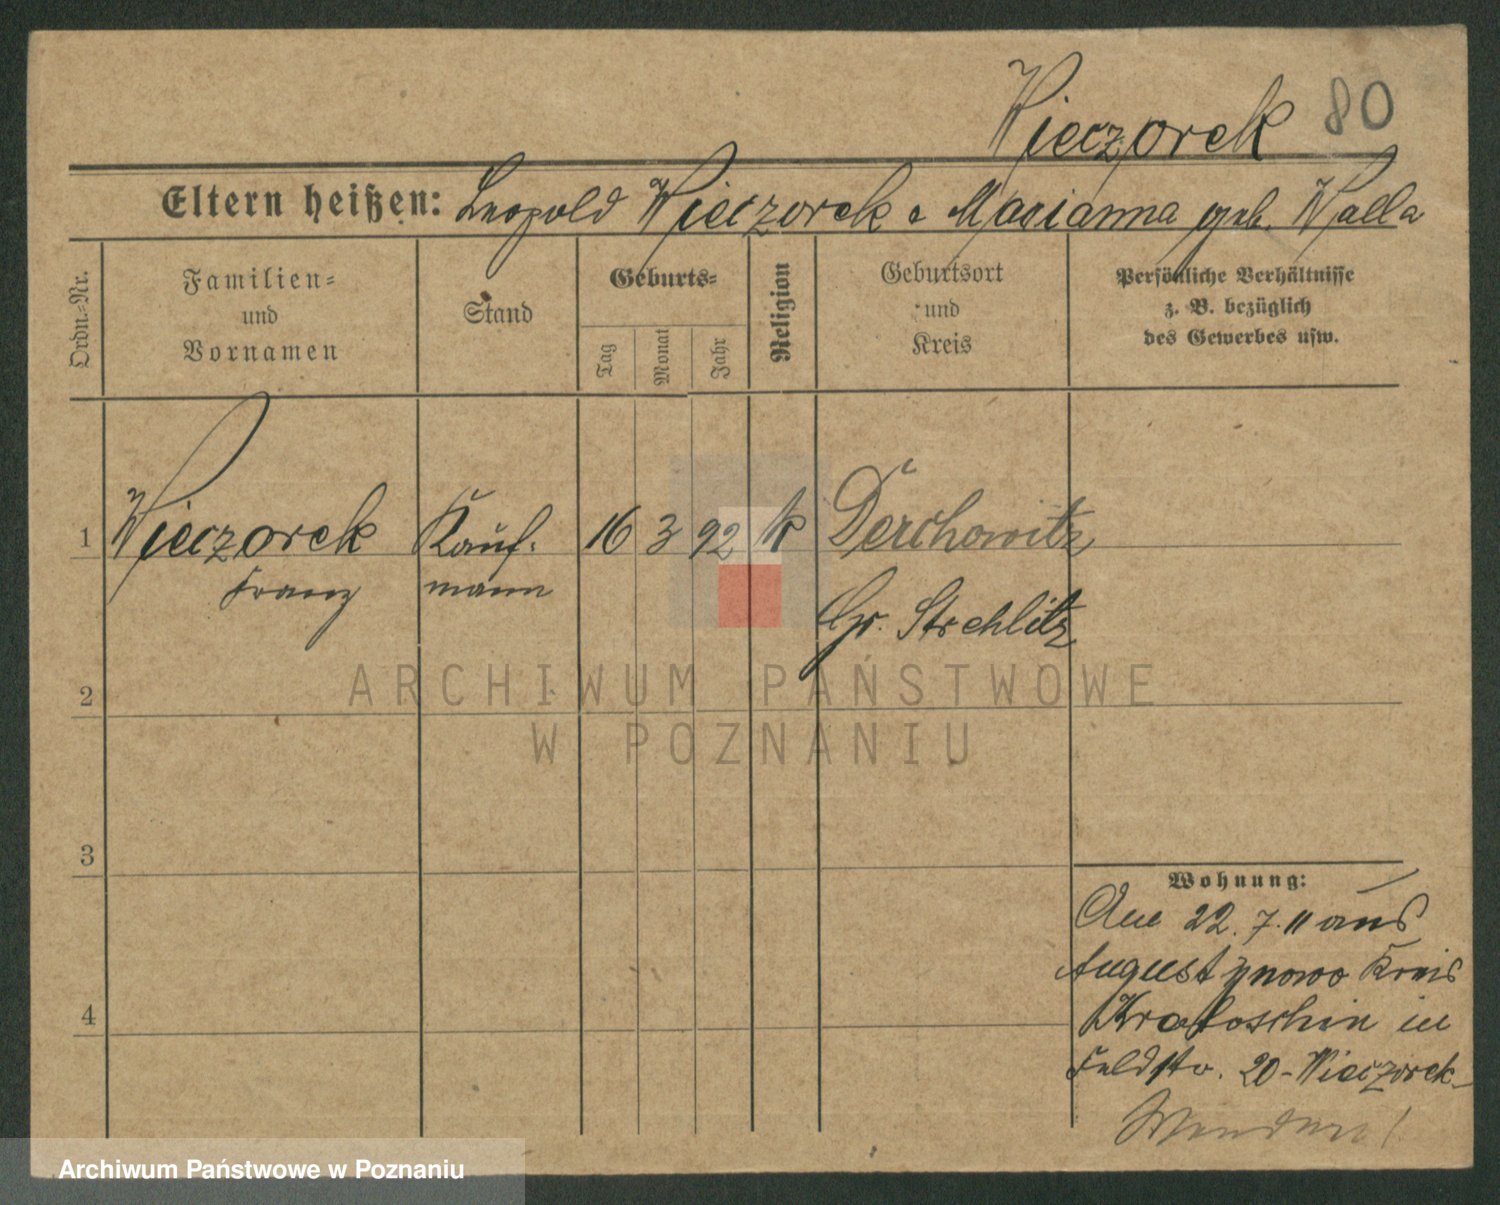 Wieczorek 80
Eltern heißen: Leopold Wieczorek e Marianna geb. Walla
Ordn.-Nr.
Familien-
und
Vornamen
Stand
Geburts-
Tag
Monat
Jahr
Religion
Geburtsort
und
Kreis
Persönliche Verhältnisse
z. B. bezüglich
des Gewerbes usw.
1 Wieczorek Kauf- 16 3 92 k Derchowitz
Franz mann Gr. Strehlitz
2
ARCHIWUM PAŃSTWOWE
W POZNANIU
3
Wohnung:
Am 22. 7. 11 aus
Augustynowo Kreis
4
Krotoschin in
Feldstr. 20 - Wieczorek
Wenden!
Archiwum Państwowe w Poznaniu